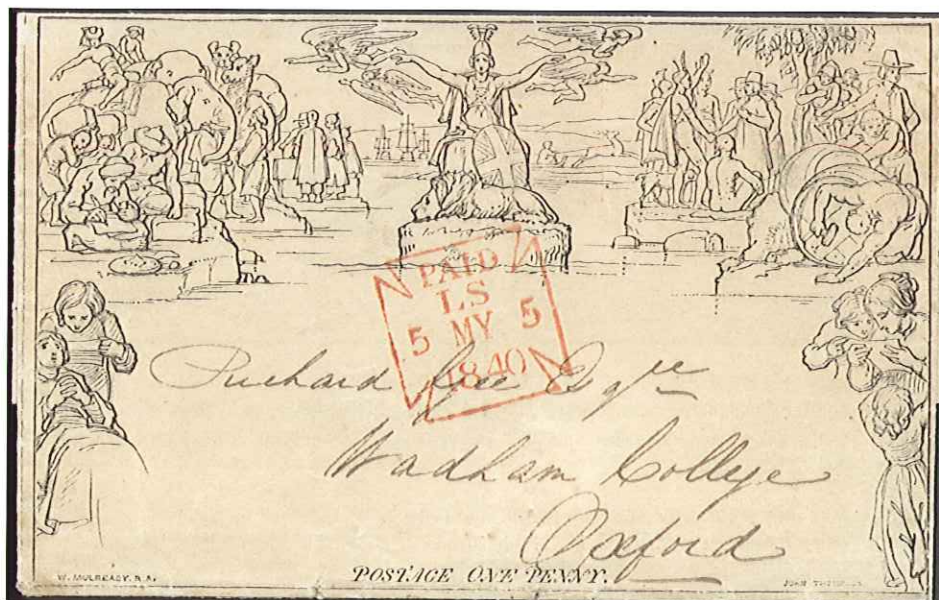 PAID
LS
5 MY 5
1840
Richard Gee Esqre
Wadham College
Oxford
W. MULREADY. R.A.
POSTAGE ONE PENNY.
JOHN